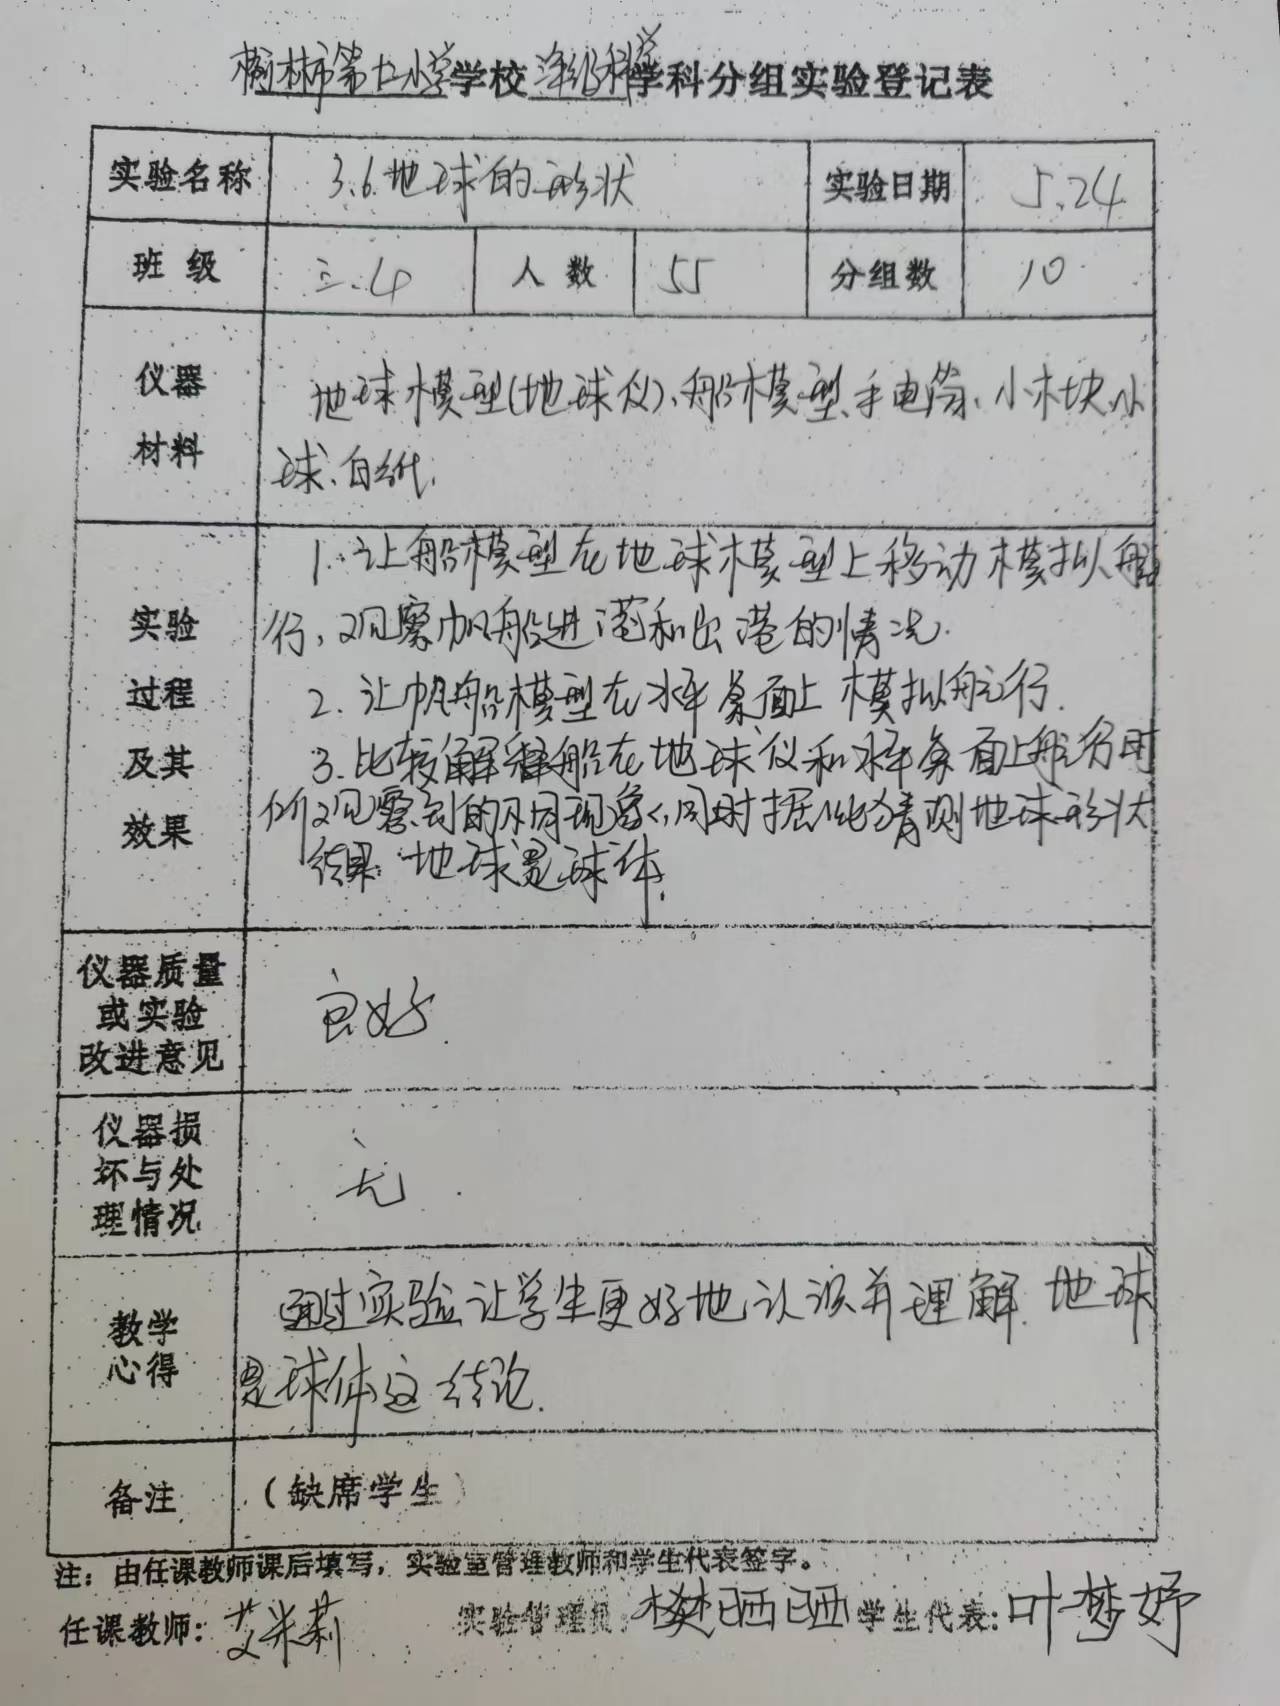 榆林市第十二小学学校三年级科学学科分组实验登记表
实验名称 3.6地球的形状 实验日期 5.24
班 级 三.4 人 数 55 分组数 10
仪器
材料
地球模型(地球仪)、船模型、手电筒、小木块、小
球、白纸.
实验
过程
及其
效果
1. 让船模型在地球模型上移动模拟航
行,观察帆船进港和出港的情况.
2. 让帆船模型在水平桌面上模拟航行.
3. 比较解释船在地球仪和水平桌面上航行时
所观察到的不同现象,同时据此猜测地球形状
结果:地球是球体.
仪器质量
或实验
改进意见
良好.
仪器损
坏与处
理情况
无.
教学
心得
通过实验让学生更好地认识并理解.地球
是球体这结论.
备注 (缺席学生)
注：由任课教师课后填写，实验室管理教师和学生代表签字。
任课教师: 艾米莉 实验管理员: 樊晒晒 学生代表: 叶梦妤